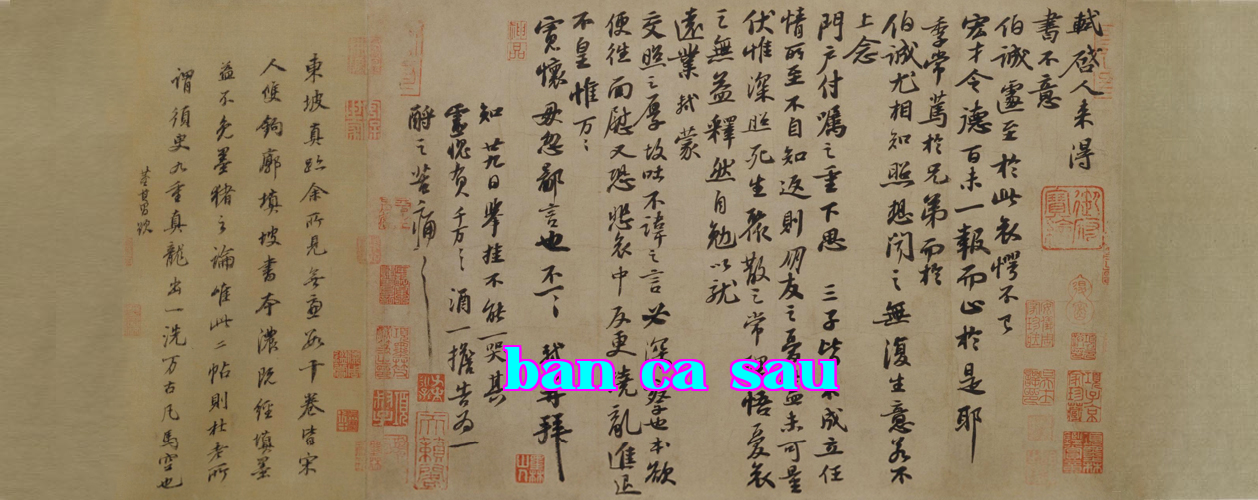 軾啓人來得
書不意
伯誠遽至於此哀愕不已
宏才令德百未一報而止於是耶
季常篤於兄弟而於
伯誠尤相知照想聞之無復生意若不
上念
門户付囑之重下思三子皆不成立任
情所至不自知返則朋友之憂蓋未可量
伏惟深照死生聚散之常理悟憂哀
之無益釋然自勉以就
遠業軾蒙
交照之厚故吐不諱之言必深察也本欲
便往面慰又恐悲哀中反更撓亂進退
不皇惟万万
寬懷毋忽鄙言也不一一軾再拜
知廿九日舉挂不能一哭其
靈愧負千万千万酒一擔告为一
酹之苦痛苦痛
東坡真跡余所見無慮數十卷皆宋
人雙鉤廓填坡書本濃既經填墨
益不免墨豬之論唯此二帖則杜老所
謂須臾九重真龍出一洗万古凡馬空也
董其昌題
天籟閣
ban ca sau